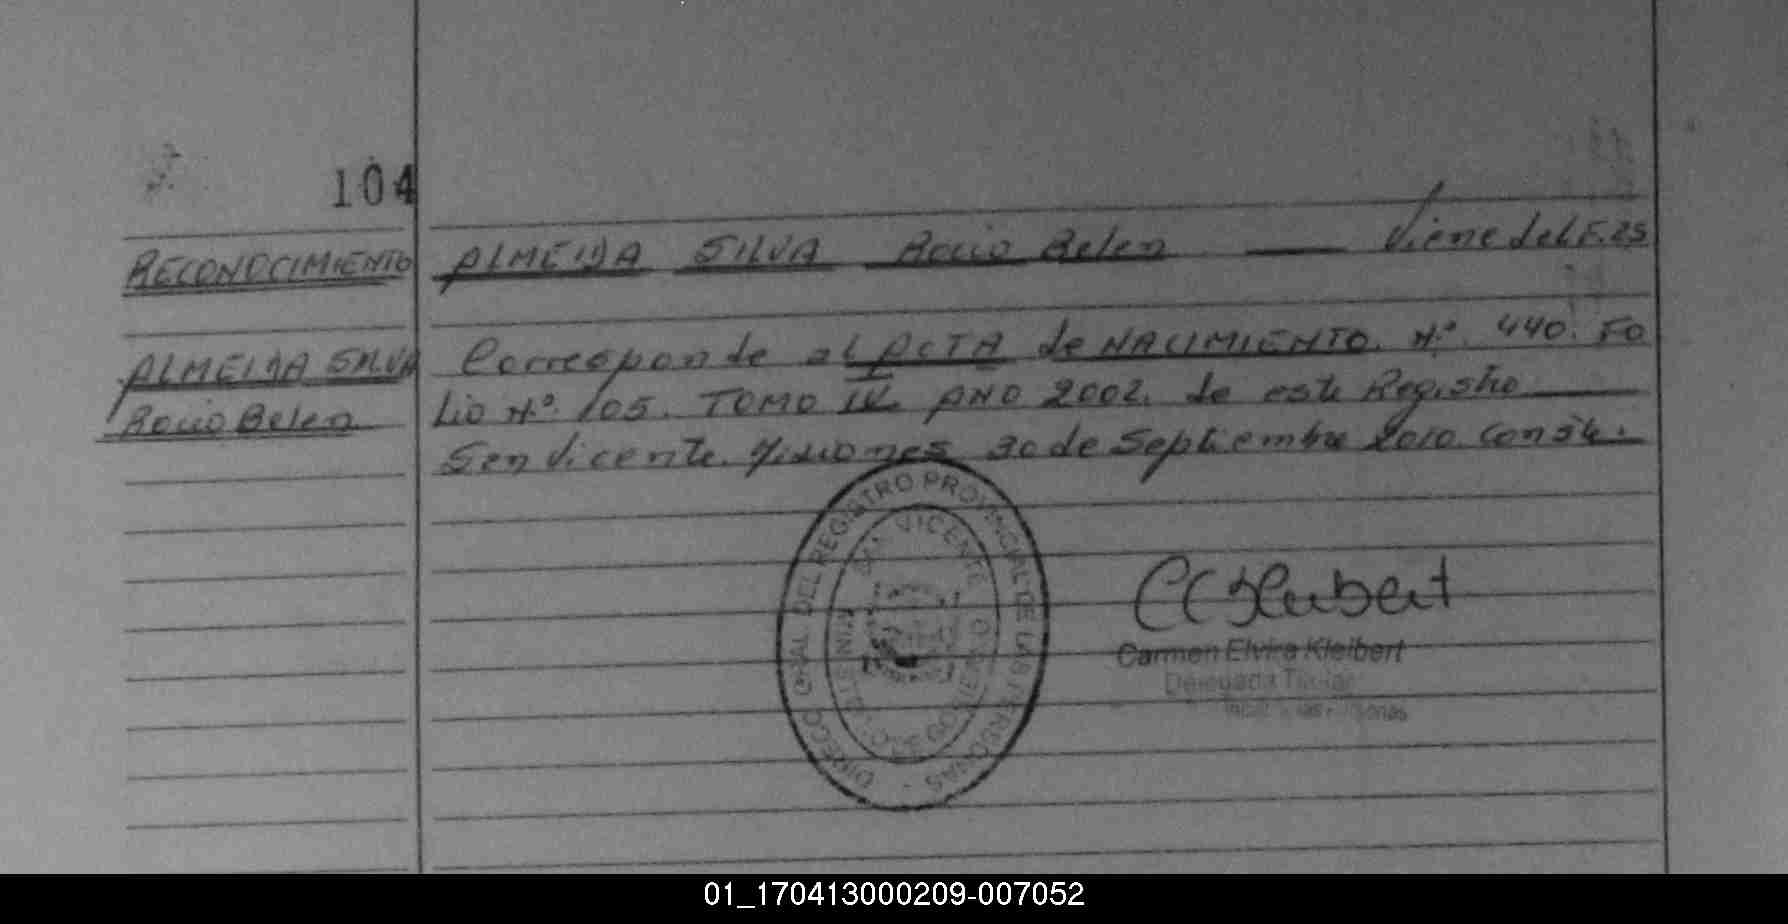 104
RECONOCIMIENTO
ALMEIDA SILVA Rocio Belen — Viene del F. 25
ALMEIDA SILVA
Rocio Belen
Corresponde al ACTA de NACIMIENTO. Nº. 440. FO
Lio Nº. 105. TOMO IV. AÑO 2002. de este Registro
San Vicente. Misiones 30 de Septiembre 2010. Conste.
DIRECC. GRAL. DEL REGISTRO PROVINCIAL DE LAS PERSONAS
SAN VICENTE
MINISTERIO DE GOBIERNO
Carmen Elvira Kleibert
Delegada Titular
01_170413000209-007052